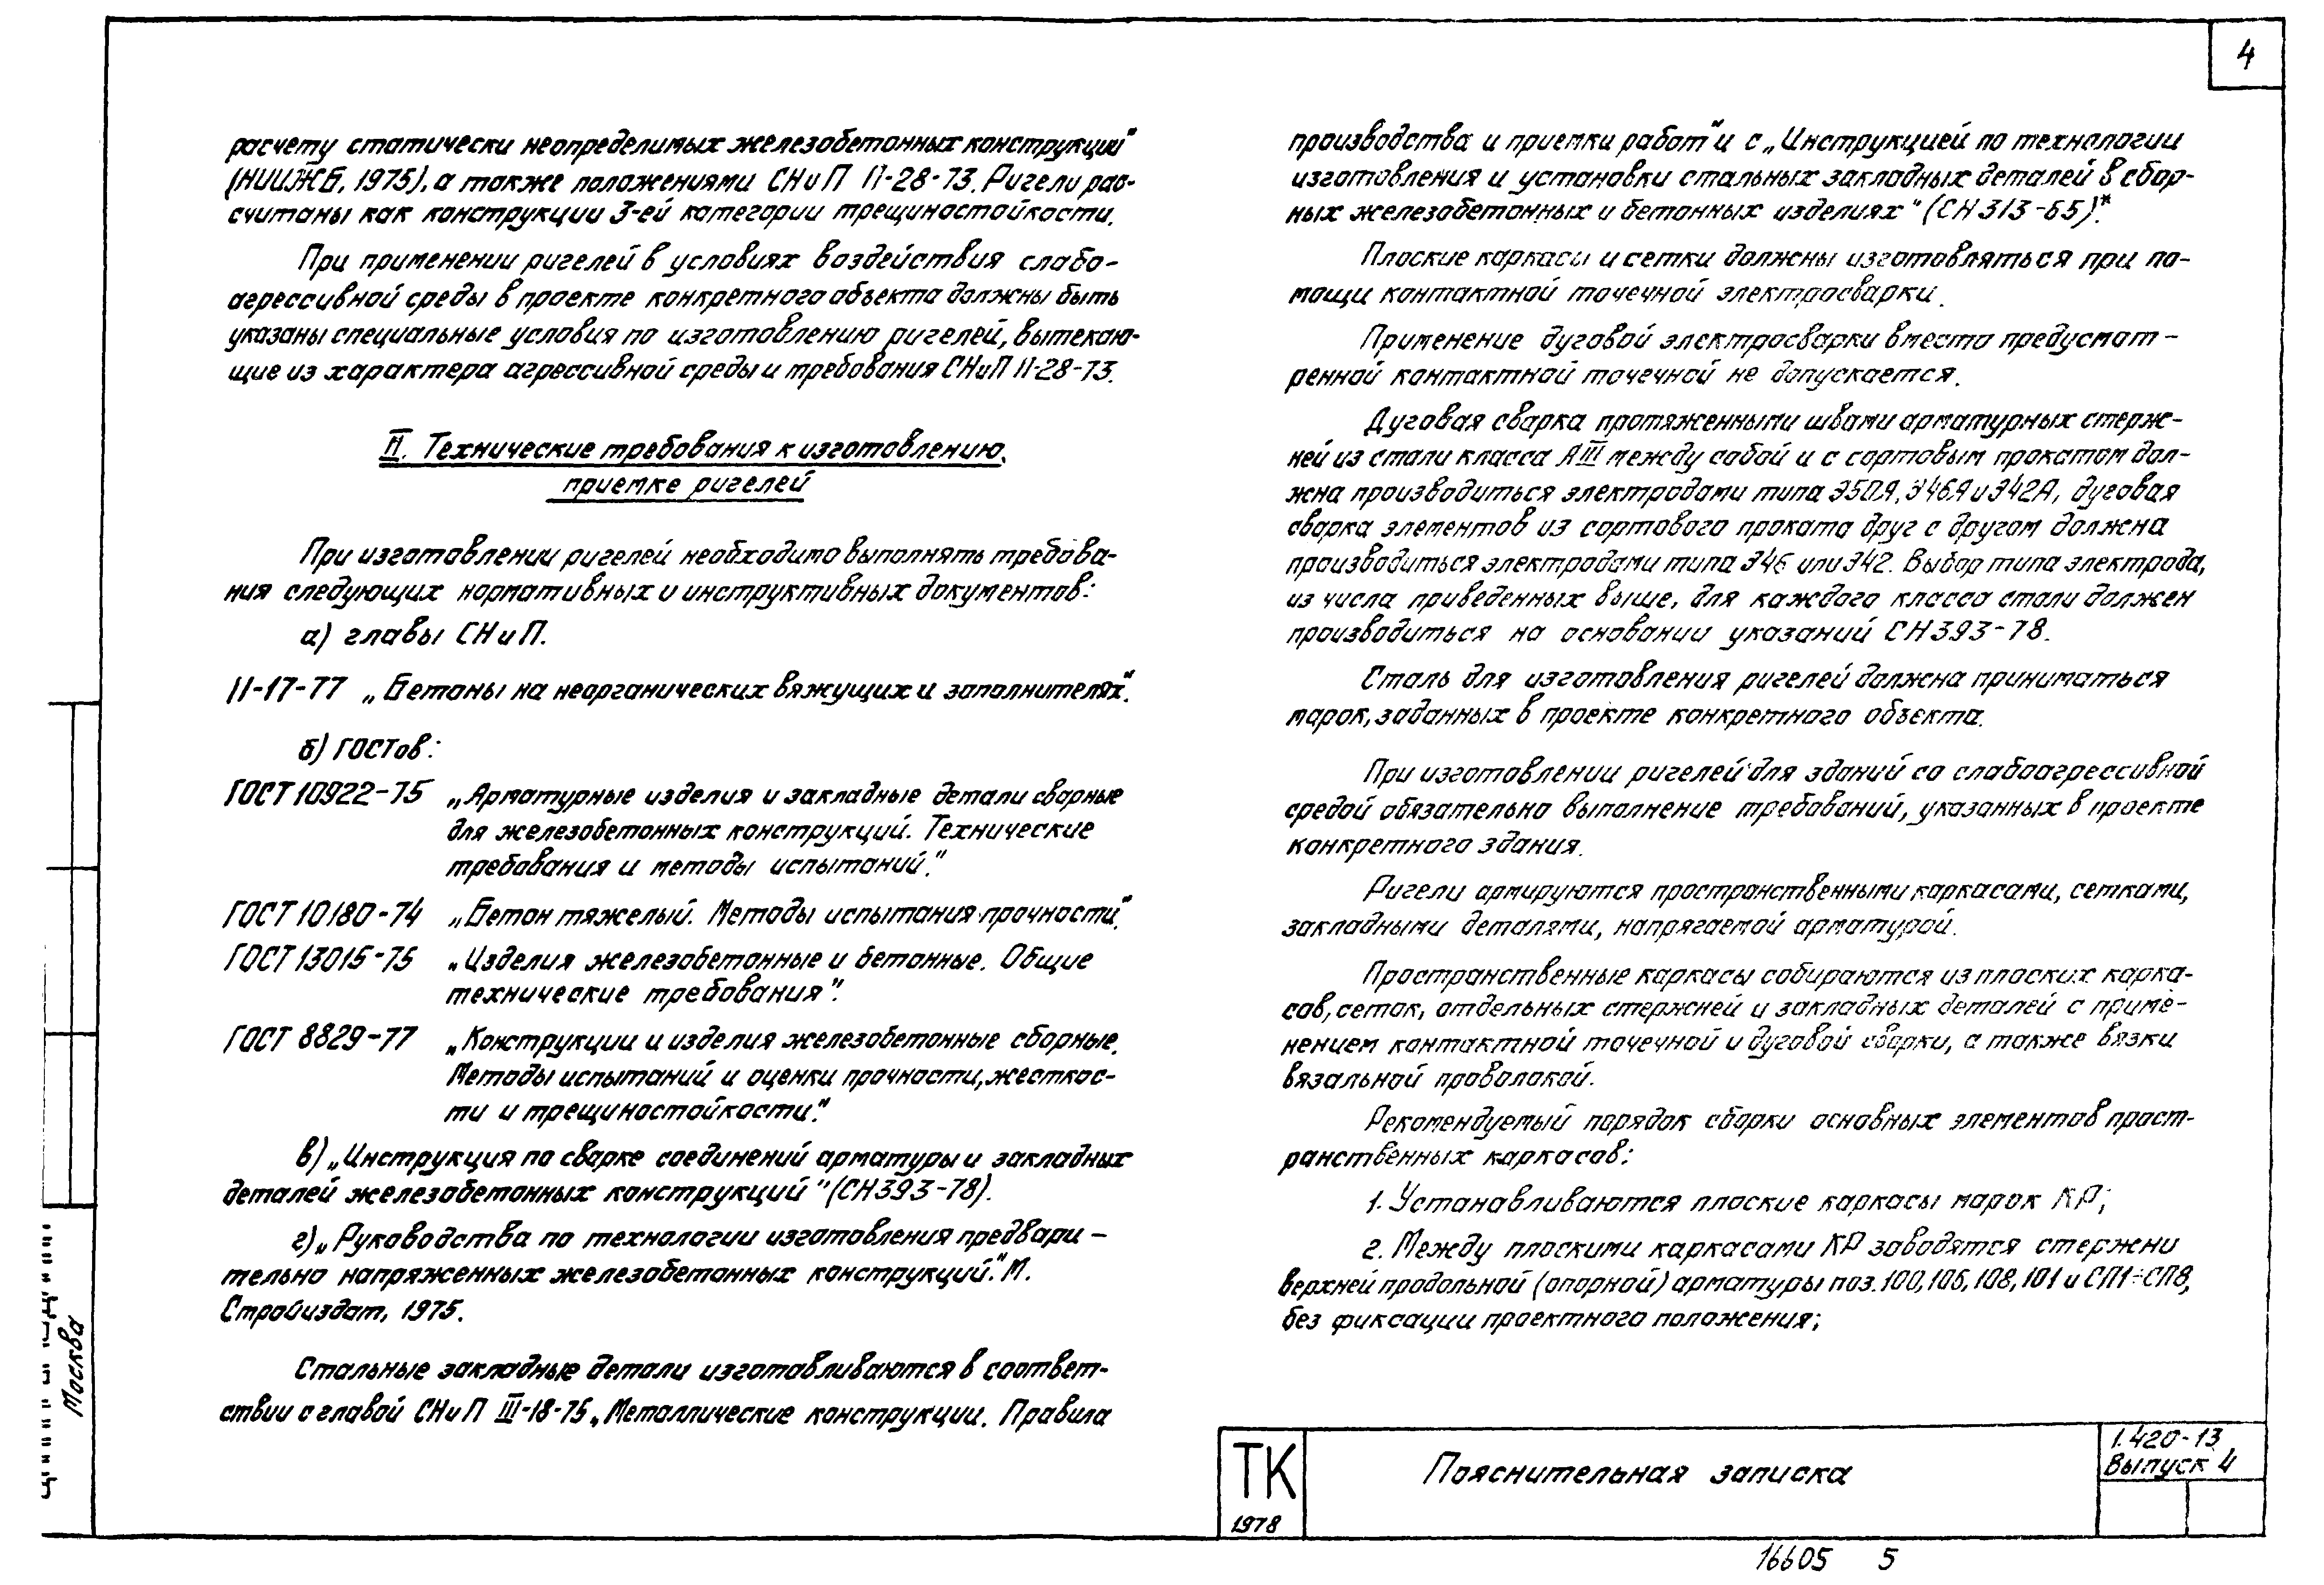 4
расчету статически неопределимых железобетонных конструкций"
(НИИЖБ, 1975), а также положениями СНиП II-28-73. Ригели рас-
считаны как конструкции 3-ей категории трещиностойкости.
При применении ригелей в условиях воздействия слабо-
агрессивной среды в проекте конкретного объекта должны быть
указаны специальные условия по изготовлению ригелей, вытекаю-
щие из характера агрессивной среды и требования СНиП II-28-73.
II. Технические требования к изготовлению,
приемке ригелей
При изготовлении ригелей необходимо выполнять требова-
ния следующих нормативных и инструктивных документов:
а) главы СНиП.
II-17-77 „Бетоны на неорганических вяжущих и заполнителях".
б) ГОСТов:
ГОСТ 10922-75 „Арматурные изделия и закладные детали сварные
для железобетонных конструкций. Технические
требования и методы испытаний".
ГОСТ 10180-74 „Бетон тяжелый. Методы испытания прочности".
ГОСТ 13015-75 „Изделия железобетонные и бетонные. Общие
технические требования".
ГОСТ 8829-77 „Конструкции и изделия железобетонные сборные.
Методы испытаний и оценки прочности, жесткос-
ти и трещиностойкости".
в) „Инструкция по сварке соединений арматуры и закладных
деталей железобетонных конструкций" (СН 393-78).
г) „Руководства по технологии изготовления предвари-
тельно напряженных железобетонных конструкций". М.
Стройиздат, 1975.
Стальные закладные детали изготавливаются в соответ-
ствии с главой СНиП III-18-75 „Металлические конструкции. Правила
производства и приемки работ" и с „Инструкцией по технологии
изготовления и установки стальных закладных деталей в сбор-
ных железобетонных и бетонных изделиях" (СН 313-65)*.
Плоские каркасы и сетки должны изготовляться при по-
мощи контактной точечной электросварки.
Применение дуговой электросварки вместо предусмот-
ренной контактной точечной не допускается.
Дуговая сварка протяженными швами арматурных стерж-
ней из стали класса АIII между собой и с сортовым прокатом дол-
жна производиться электродами типа Э50А, Э46А и Э42А, дуговая
сварка элементов из сортового проката друг с другом должна
производиться электродами типа Э46 или Э42. Выбор типа электрода,
из числа приведенных выше, для каждого класса стали должен
производиться на основании указаний СН 393-78.
Сталь для изготовления ригелей должна приниматься
марок, заданных в проекте конкретного объекта.
При изготовлении ригелей для зданий со слабоагрессивной
средой обязательно выполнение требований, указанных в проекте
конкретного здания.
Ригели армируются пространственными каркасами, сетками,
закладными деталями, напрягаемой арматурой.
Пространственные каркасы собираются из плоских карка-
сов, сеток, отдельных стержней и закладных деталей с приме-
нением контактной точечной и дуговой сварки, а также вязки
вязальной проволокой.
Рекомендуемый порядок сборки основных элементов прост-
ранственных каркасов:
1. Устанавливаются плоские каркасы марок КР;
2. Между плоскими каркасами КР заводятся стержни
верхней продольной (опорной) арматуры поз. 100, 106, 108, 101 и СП1÷СП8,
без фиксации проектного положения;
Москва
ТК
1978
Пояснительная записка
1.420-13
Выпуск 4
16605 5